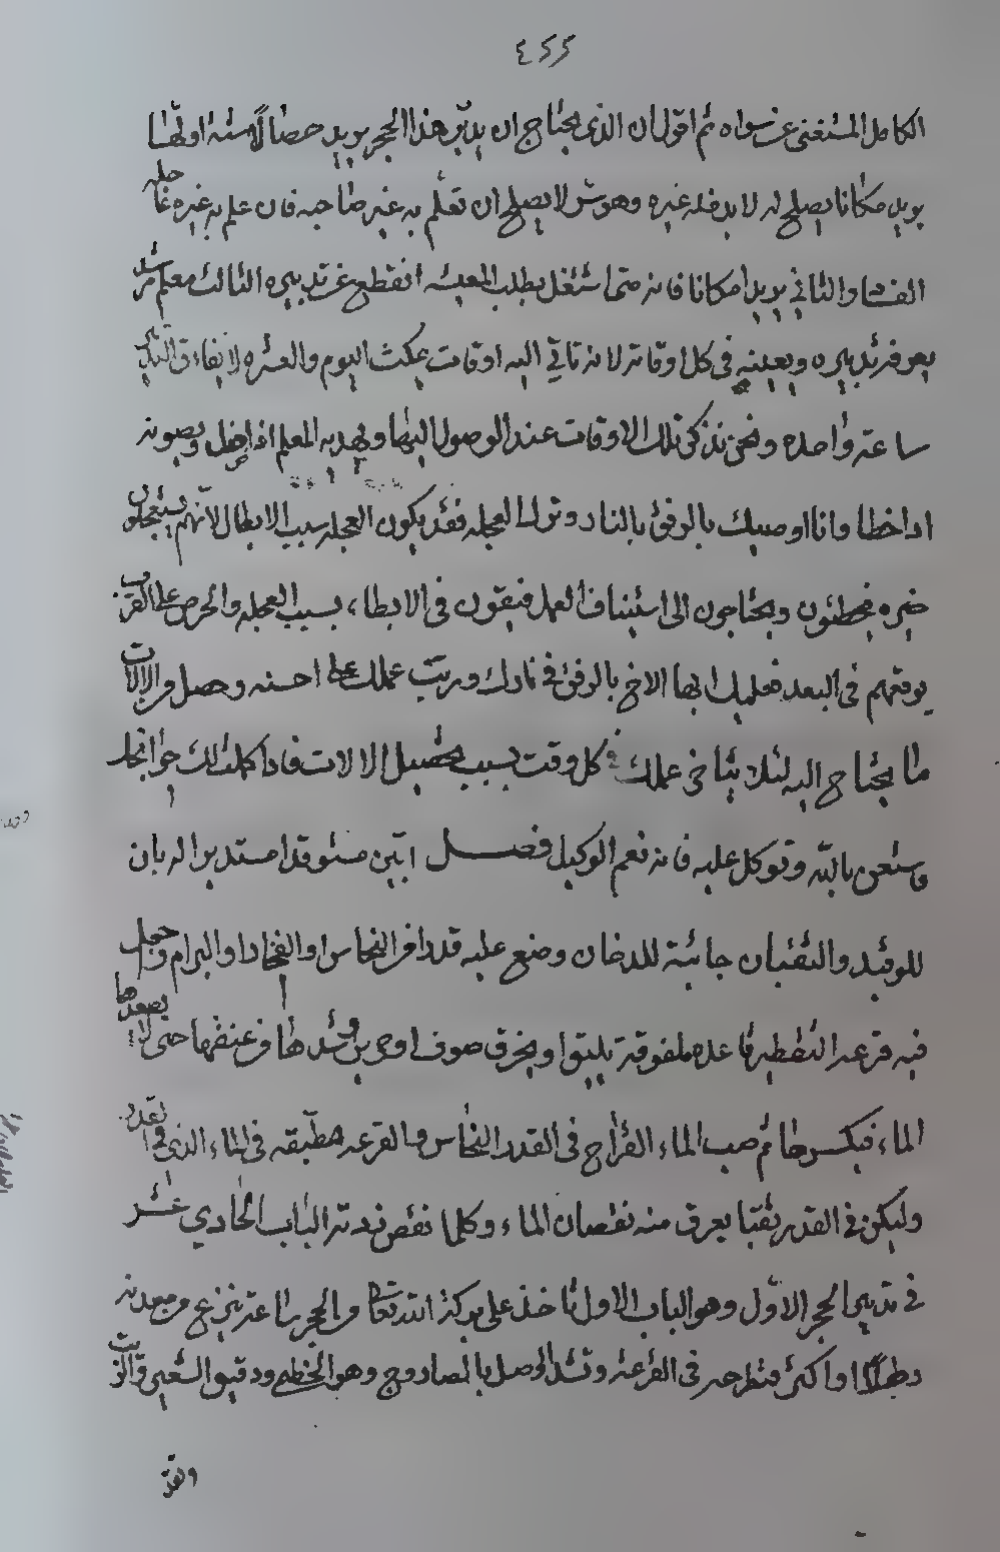 ٤٢٢
الكامل المستغنى عن سواه ثم اقول ان الذى يحتاج ان يدبّر هذا الحجر يريد خصالًا ستة اولها
يريد مكانا يصلح له لا يدخله غيره وهو سرّ لا يصلح ان تعلم به غير صاحبه فان علم به غيره خاف عليه
الفساد والثاني يريد امكانا فانه متا اشتغل بطلب المعيشه انقطع عن تدبيره الثالث معلم مرشد
يعرفه تدبيره ويعينه فى كل اوقاته لانه تاتي اليه اوقات يمكث اليوم والعشره لا يفارق
ساعة واحده ونحن نذكر تلك الاوقات عند الوصول اليها ويهديه المعلم اذا جهل ويصونه
اذا خطا وانا اوصيك بالرفق بالنار وترك العجله فقد يكون العجله سبب الابطال لانهم يستعجلون
فيخطئون ويحتاجون الى استيناف العمل فيقعون فى الابطاء بسبب العجله والحرص على القرب
يوقعهم فى البعد فعليك ايها الاخ بالرفق فى نارك ورتب عملك على احسنه وحصل من الالات
ما يحتاج اليه لئلا يتاخر عملك فى كل وقت بسبب تحصيل الالات فاذا كملت لك
فاستعن بالله وتوكل عليه فانه نعم الوكيل فصل ابتن مستوقدا مستديرا له بابان
للوقيد والثقبان جانبية للدخان وضع عليه قدرا من النحاس او الفخار او البرام واجعل
فيه قرعة التقطير قاعده ملفوفة بليتوا وبخرق صوف او حرير وشدها من عنقها حتى لا يصعدها
الماء فيكسرها ثم صب الماء القراح فى القدر النحاس والقرعه مطبقه فى الماء الذى فى القدر
وليكن فى القدر ثقبا يعرف منه نقصان الماء وكلما نقص زدته الباب الحادي عشر
فى تدبير الحجر الاوّل وهو الباب الاول تاخذ على بركة الله تعالى من الحجر ساعة يخرج من معدنه
رطلاً او اكثر فتطرحه فى القرعه وتشد الوصل بالصاروج وهو الخطمي ودقيق الشعير